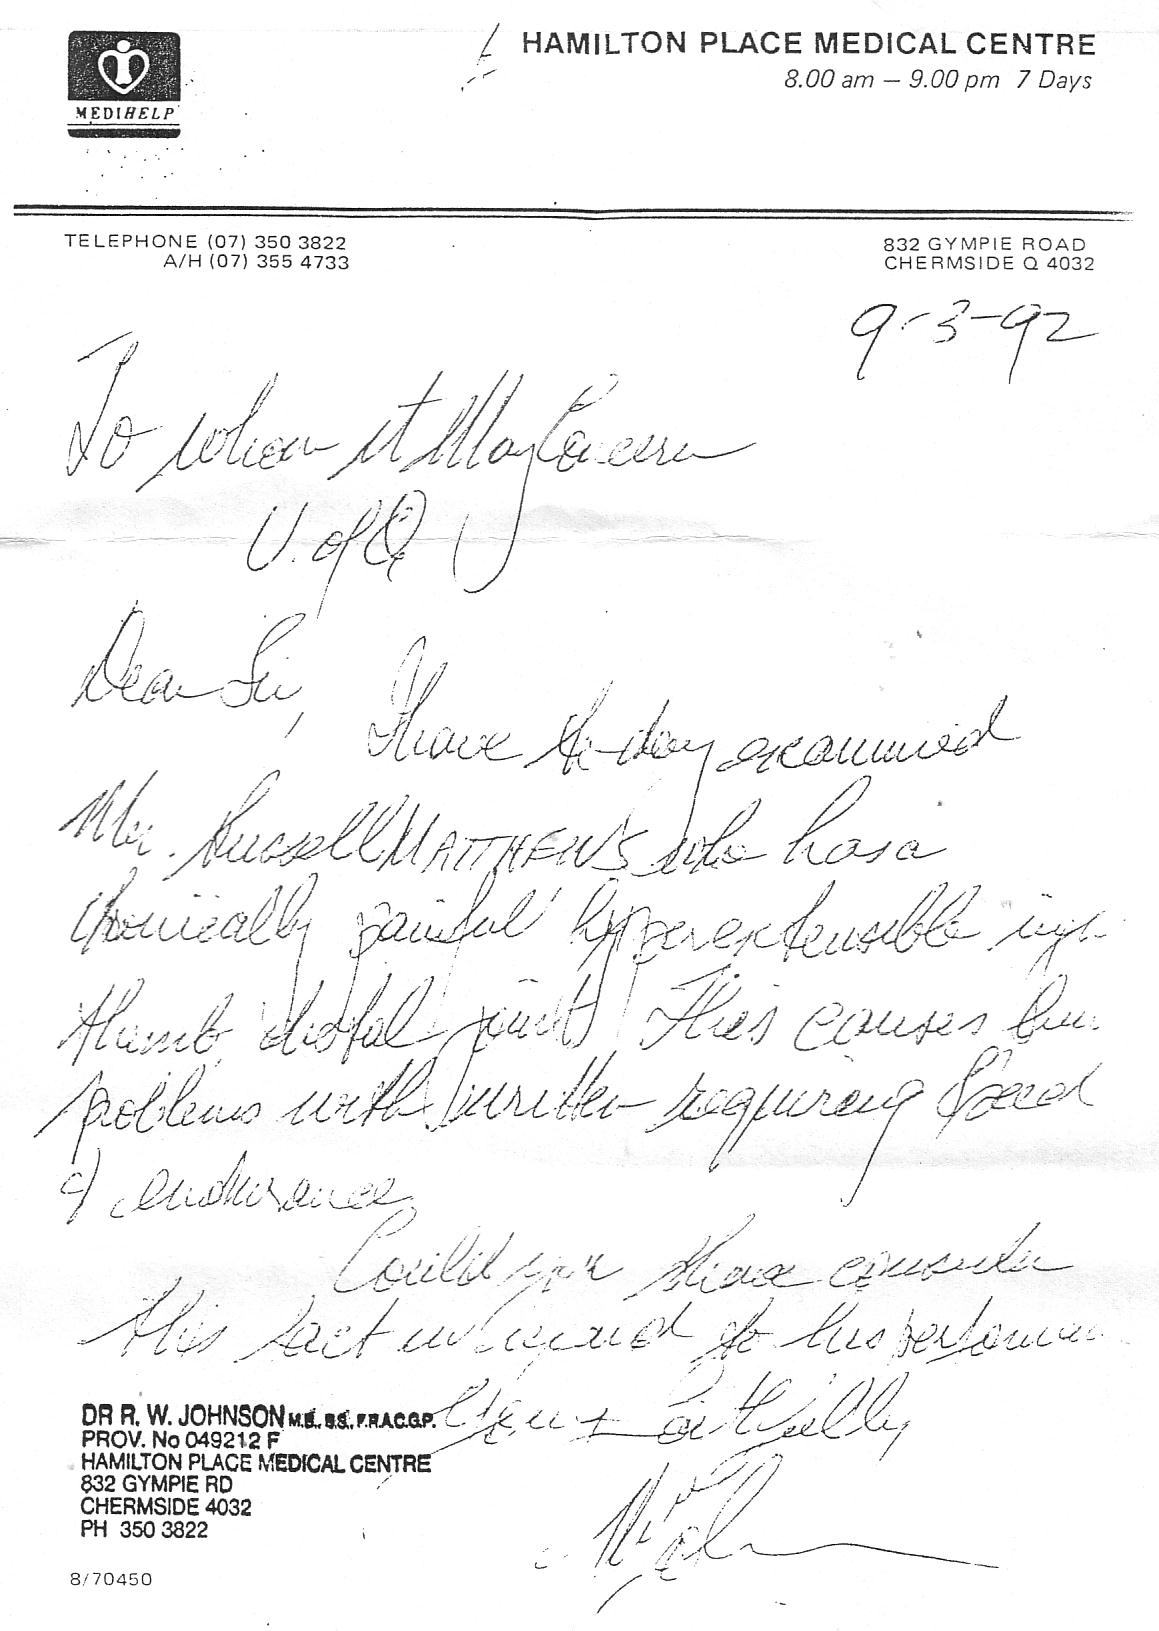 HAMILTON PLACE MEDICAL CENTRE
8.00 am – 9.00 pm 7 Days
MEDIHELP
TELEPHONE (07) 350 3822
A/H (07) 355 4733
832 GYMPIE ROAD
CHERMSIDE Q 4032
9-3-92
To whom it May Concern
U. of Q
Dear Sir,
I have to-day examined
Mr. Russell MATTHEWS who has a
chronically painful hyperextensible righ
thumb distal joint. This causes him
problems with written requiring speed
& endurance.
Could you please consider
this fact in regard to his performan
Yours Faithfully
DR R. W. JOHNSON M.B. B.S. F.R.A.C.G.P.
PROV. No 049212 F
HAMILTON PLACE MEDICAL CENTRE
832 GYMPIE RD
CHERMSIDE 4032
PH 350 3822
8/70450